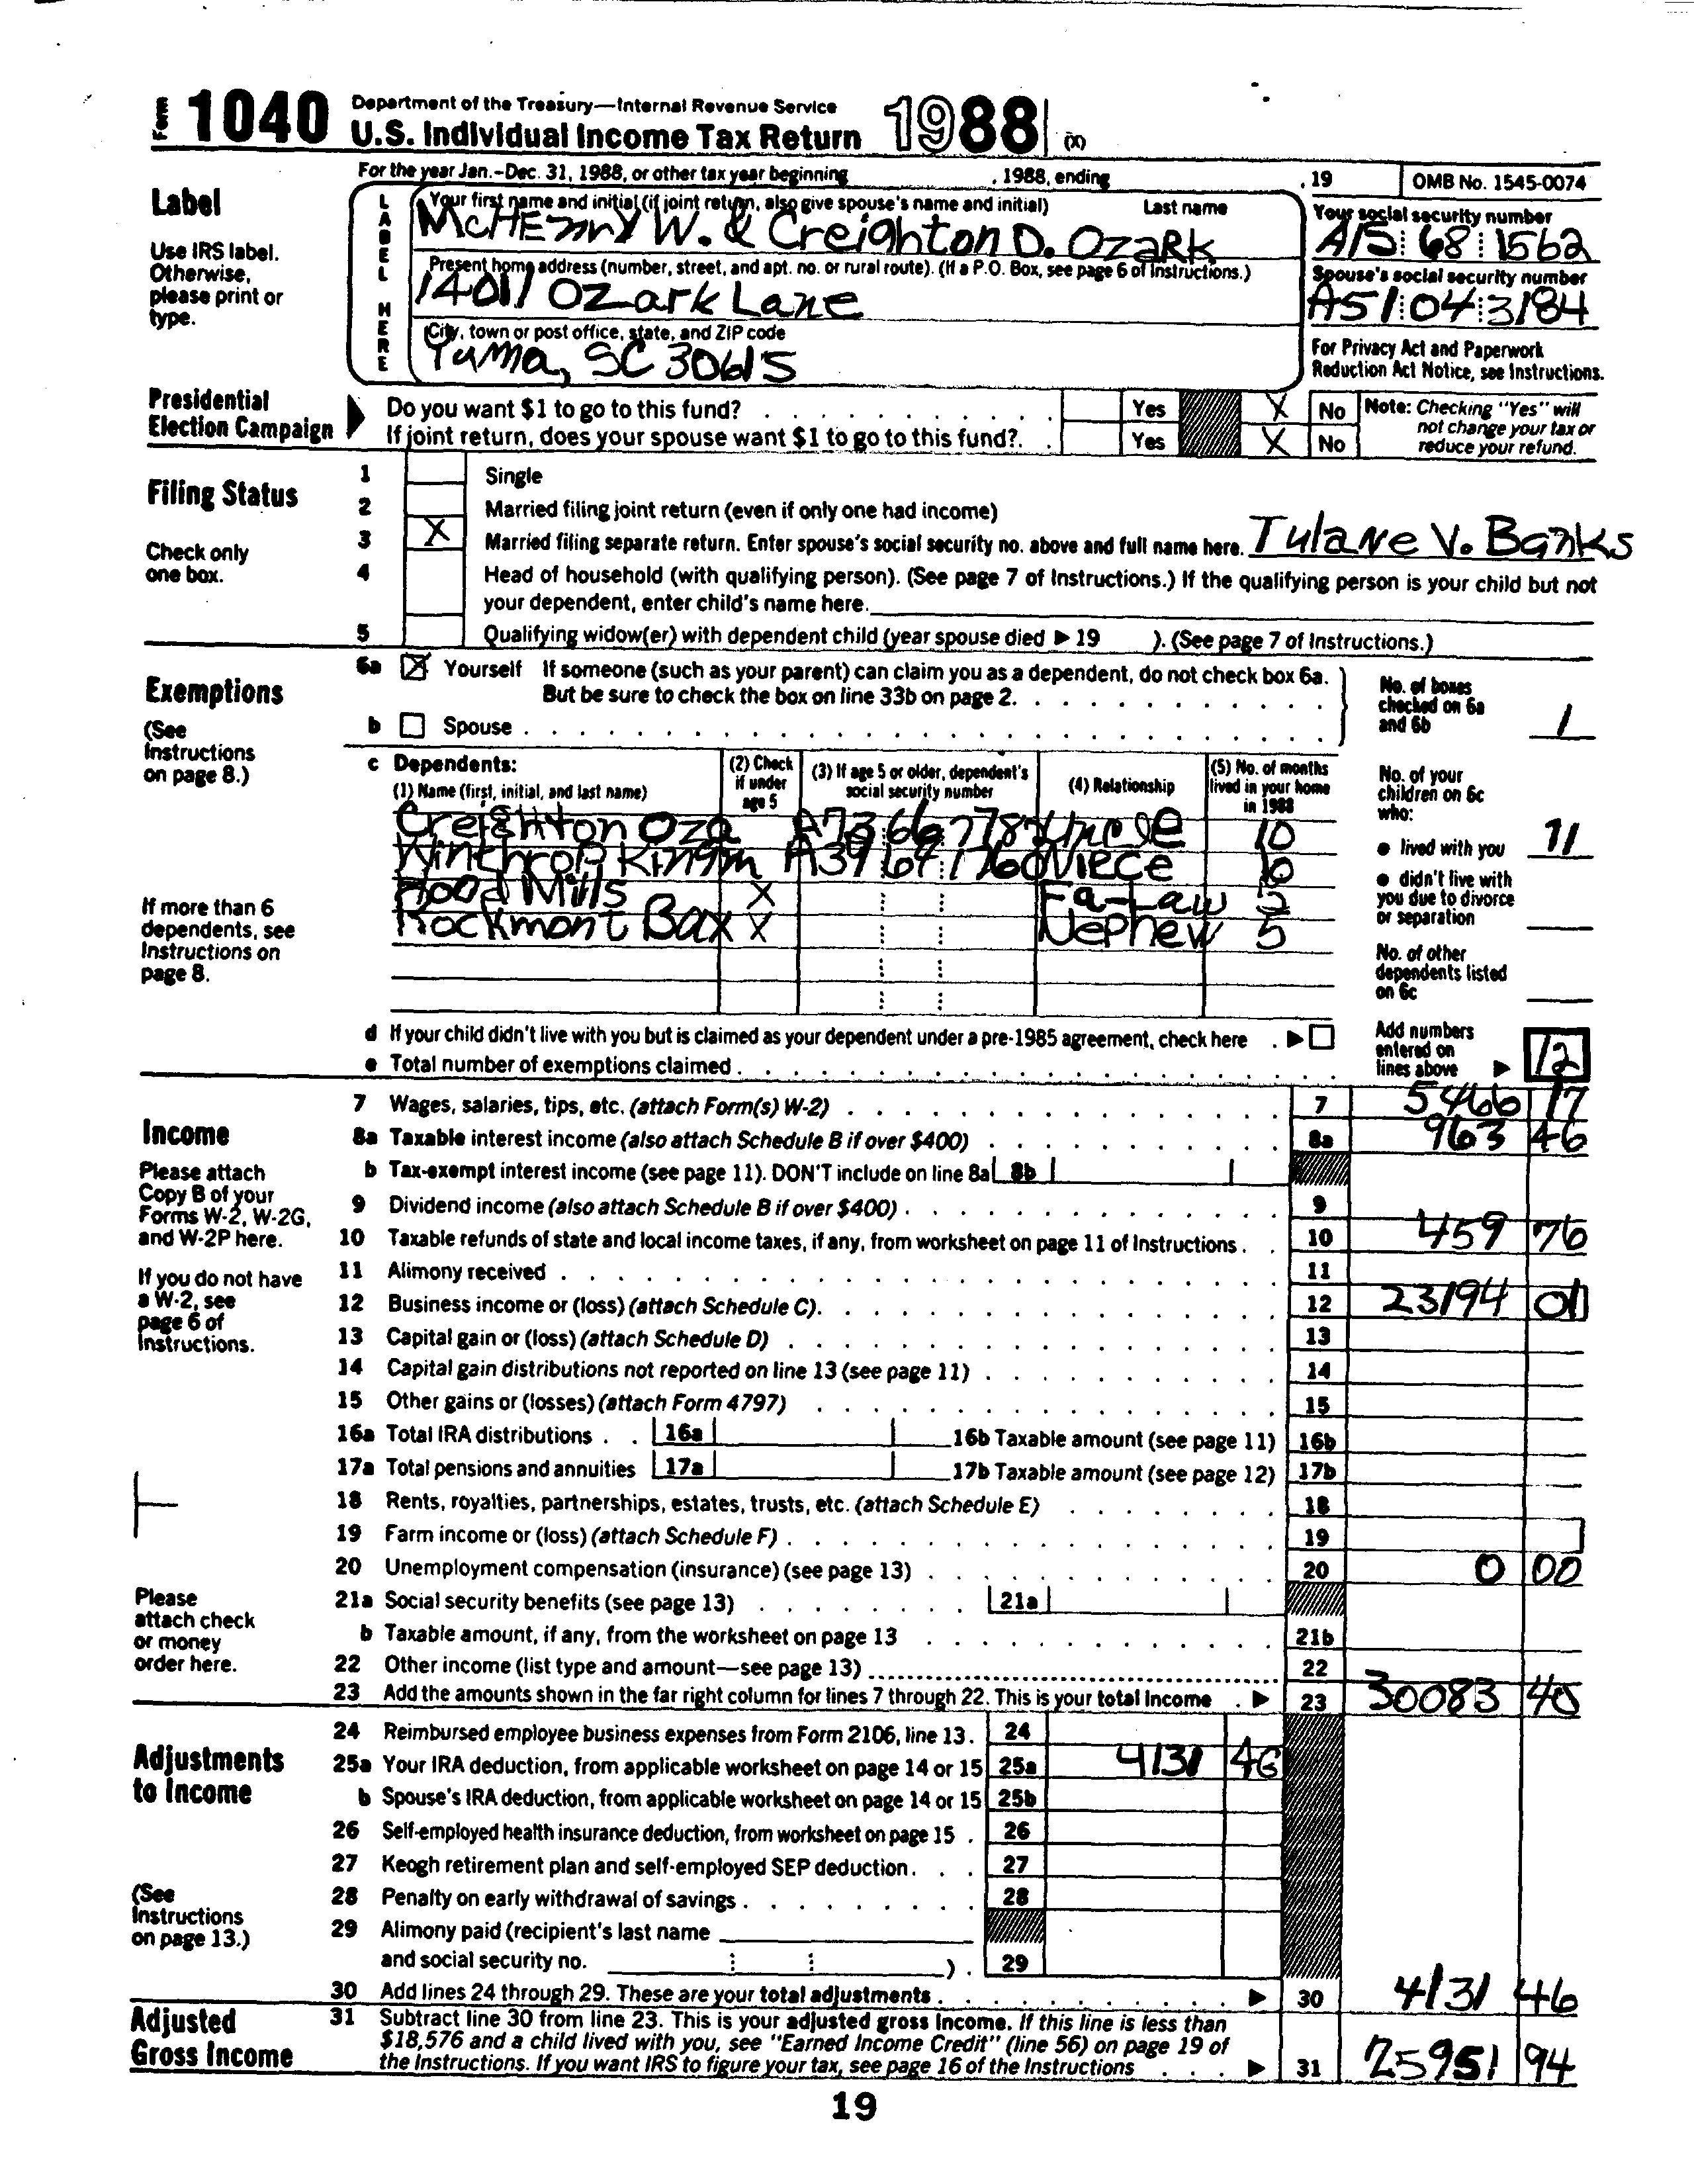 Form 1040 Department of the Treasury—Internal Revenue Service
U.S. Individual Income Tax Return 1988 (X)
For the year Jan.-Dec. 31, 1988, or other tax year beginning , 1988, ending , 19 OMB No. 1545-0074
Label
Use IRS label.
Otherwise,
please print or
type.
LABEL HERE
Your first name and initial (if joint return, also give spouse's name and initial) Last name
McHENRY W. & Creighton D. Ozark
Your social security number
A15 : 68 : 1562
Present home address (number, street, and apt. no. or rural route). (If a P.O. Box, see page 6 of Instructions.)
14011 Ozark Lane
Spouse's social security number
A51 : 04 : 3184
City, town or post office, state, and ZIP code
Yuma, SC 30615
For Privacy Act and Paperwork
Reduction Act Notice, see Instructions.
Presidential
Election Campaign
Do you want $1 to go to this fund? Yes X No
If joint return, does your spouse want $1 to go to this fund?. Yes X No
Note: Checking "Yes" will
not change your tax or
reduce your refund.
Filing Status
Check only
one box.
1 Single
2 Married filing joint return (even if only one had income)
3 X Married filing separate return. Enter spouse's social security no. above and full name here. Tulane V. Banks
4 Head of household (with qualifying person). (See page 7 of Instructions.) If the qualifying person is your child but not
your dependent, enter child's name here.
5 Qualifying widow(er) with dependent child (year spouse died ▶ 19 ). (See page 7 of Instructions.)
Exemptions
(See
Instructions
on page 8.)
If more than 6
dependents, see
Instructions on
page 8.
6a X Yourself If someone (such as your parent) can claim you as a dependent, do not check box 6a.
But be sure to check the box on line 33b on page 2.
b Spouse
No. of boxes
checked on 6a
and 6b 1
c Dependents:
(1) Name (first, initial, and last name)
(2) Check
if under
age 5
(3) If age 5 or older, dependent's
social security number
(4) Relationship
(5) No. of months
lived in your home
in 1988
Creighton Oza A73 66 7782 Uncle 10
Winthrop Kingm A39 64 1760 Niece 10
Hood Mills X Fa-Law
Rockmont Bax X Nephew 5
No. of your
children on 6c
who:
● lived with you 11
● didn't live with
you due to divorce
or separation
No. of other
dependents listed
on 6c
d If your child didn't live with you but is claimed as your dependent under a pre-1985 agreement, check here ▶
e Total number of exemptions claimed
Add numbers
entered on
lines above ▶ 12
Income
Please attach
Copy B of your
Forms W-2, W-2G,
and W-2P here.
If you do not have
a W-2, see
page 6 of
Instructions.
Please
attach check
or money
order here.
7 Wages, salaries, tips, etc. (attach Form(s) W-2) 7 5466 17
8a Taxable interest income (also attach Schedule B if over $400) 8a 963 46
b Tax-exempt interest income (see page 11). DON'T include on line 8a 8b
9 Dividend income (also attach Schedule B if over $400) 9
10 Taxable refunds of state and local income taxes, if any, from worksheet on page 11 of Instructions. 10 459 76
11 Alimony received 11
12 Business income or (loss) (attach Schedule C). 12 23194 01
13 Capital gain or (loss) (attach Schedule D) 13
14 Capital gain distributions not reported on line 13 (see page 11) 14
15 Other gains or (losses) (attach Form 4797) 15
16a Total IRA distributions 16a 16b Taxable amount (see page 11) 16b
17a Total pensions and annuities 17a 17b Taxable amount (see page 12) 17b
18 Rents, royalties, partnerships, estates, trusts, etc. (attach Schedule E) 18
19 Farm income or (loss) (attach Schedule F) 19
20 Unemployment compensation (insurance) (see page 13) 20 0 00
21a Social security benefits (see page 13) 21a
b Taxable amount, if any, from the worksheet on page 13 21b
22 Other income (list type and amount—see page 13) 22
23 Add the amounts shown in the far right column for lines 7 through 22. This is your total income ▶ 23 30083 40
Adjustments
to Income
(See
Instructions
on page 13.)
24 Reimbursed employee business expenses from Form 2106, line 13. 24
25a Your IRA deduction, from applicable worksheet on page 14 or 15 25a 4131 46
b Spouse's IRA deduction, from applicable worksheet on page 14 or 15 25b
26 Self-employed health insurance deduction, from worksheet on page 15 26
27 Keogh retirement plan and self-employed SEP deduction 27
28 Penalty on early withdrawal of savings 28
29 Alimony paid (recipient's last name
and social security no. ) 29
30 Add lines 24 through 29. These are your total adjustments ▶ 30 4131 46
Adjusted
Gross Income
31 Subtract line 30 from line 23. This is your adjusted gross income. If this line is less than
$18,576 and a child lived with you, see "Earned Income Credit" (line 56) on page 19 of
the Instructions. If you want IRS to figure your tax, see page 16 of the Instructions ▶ 31 25951 94
19